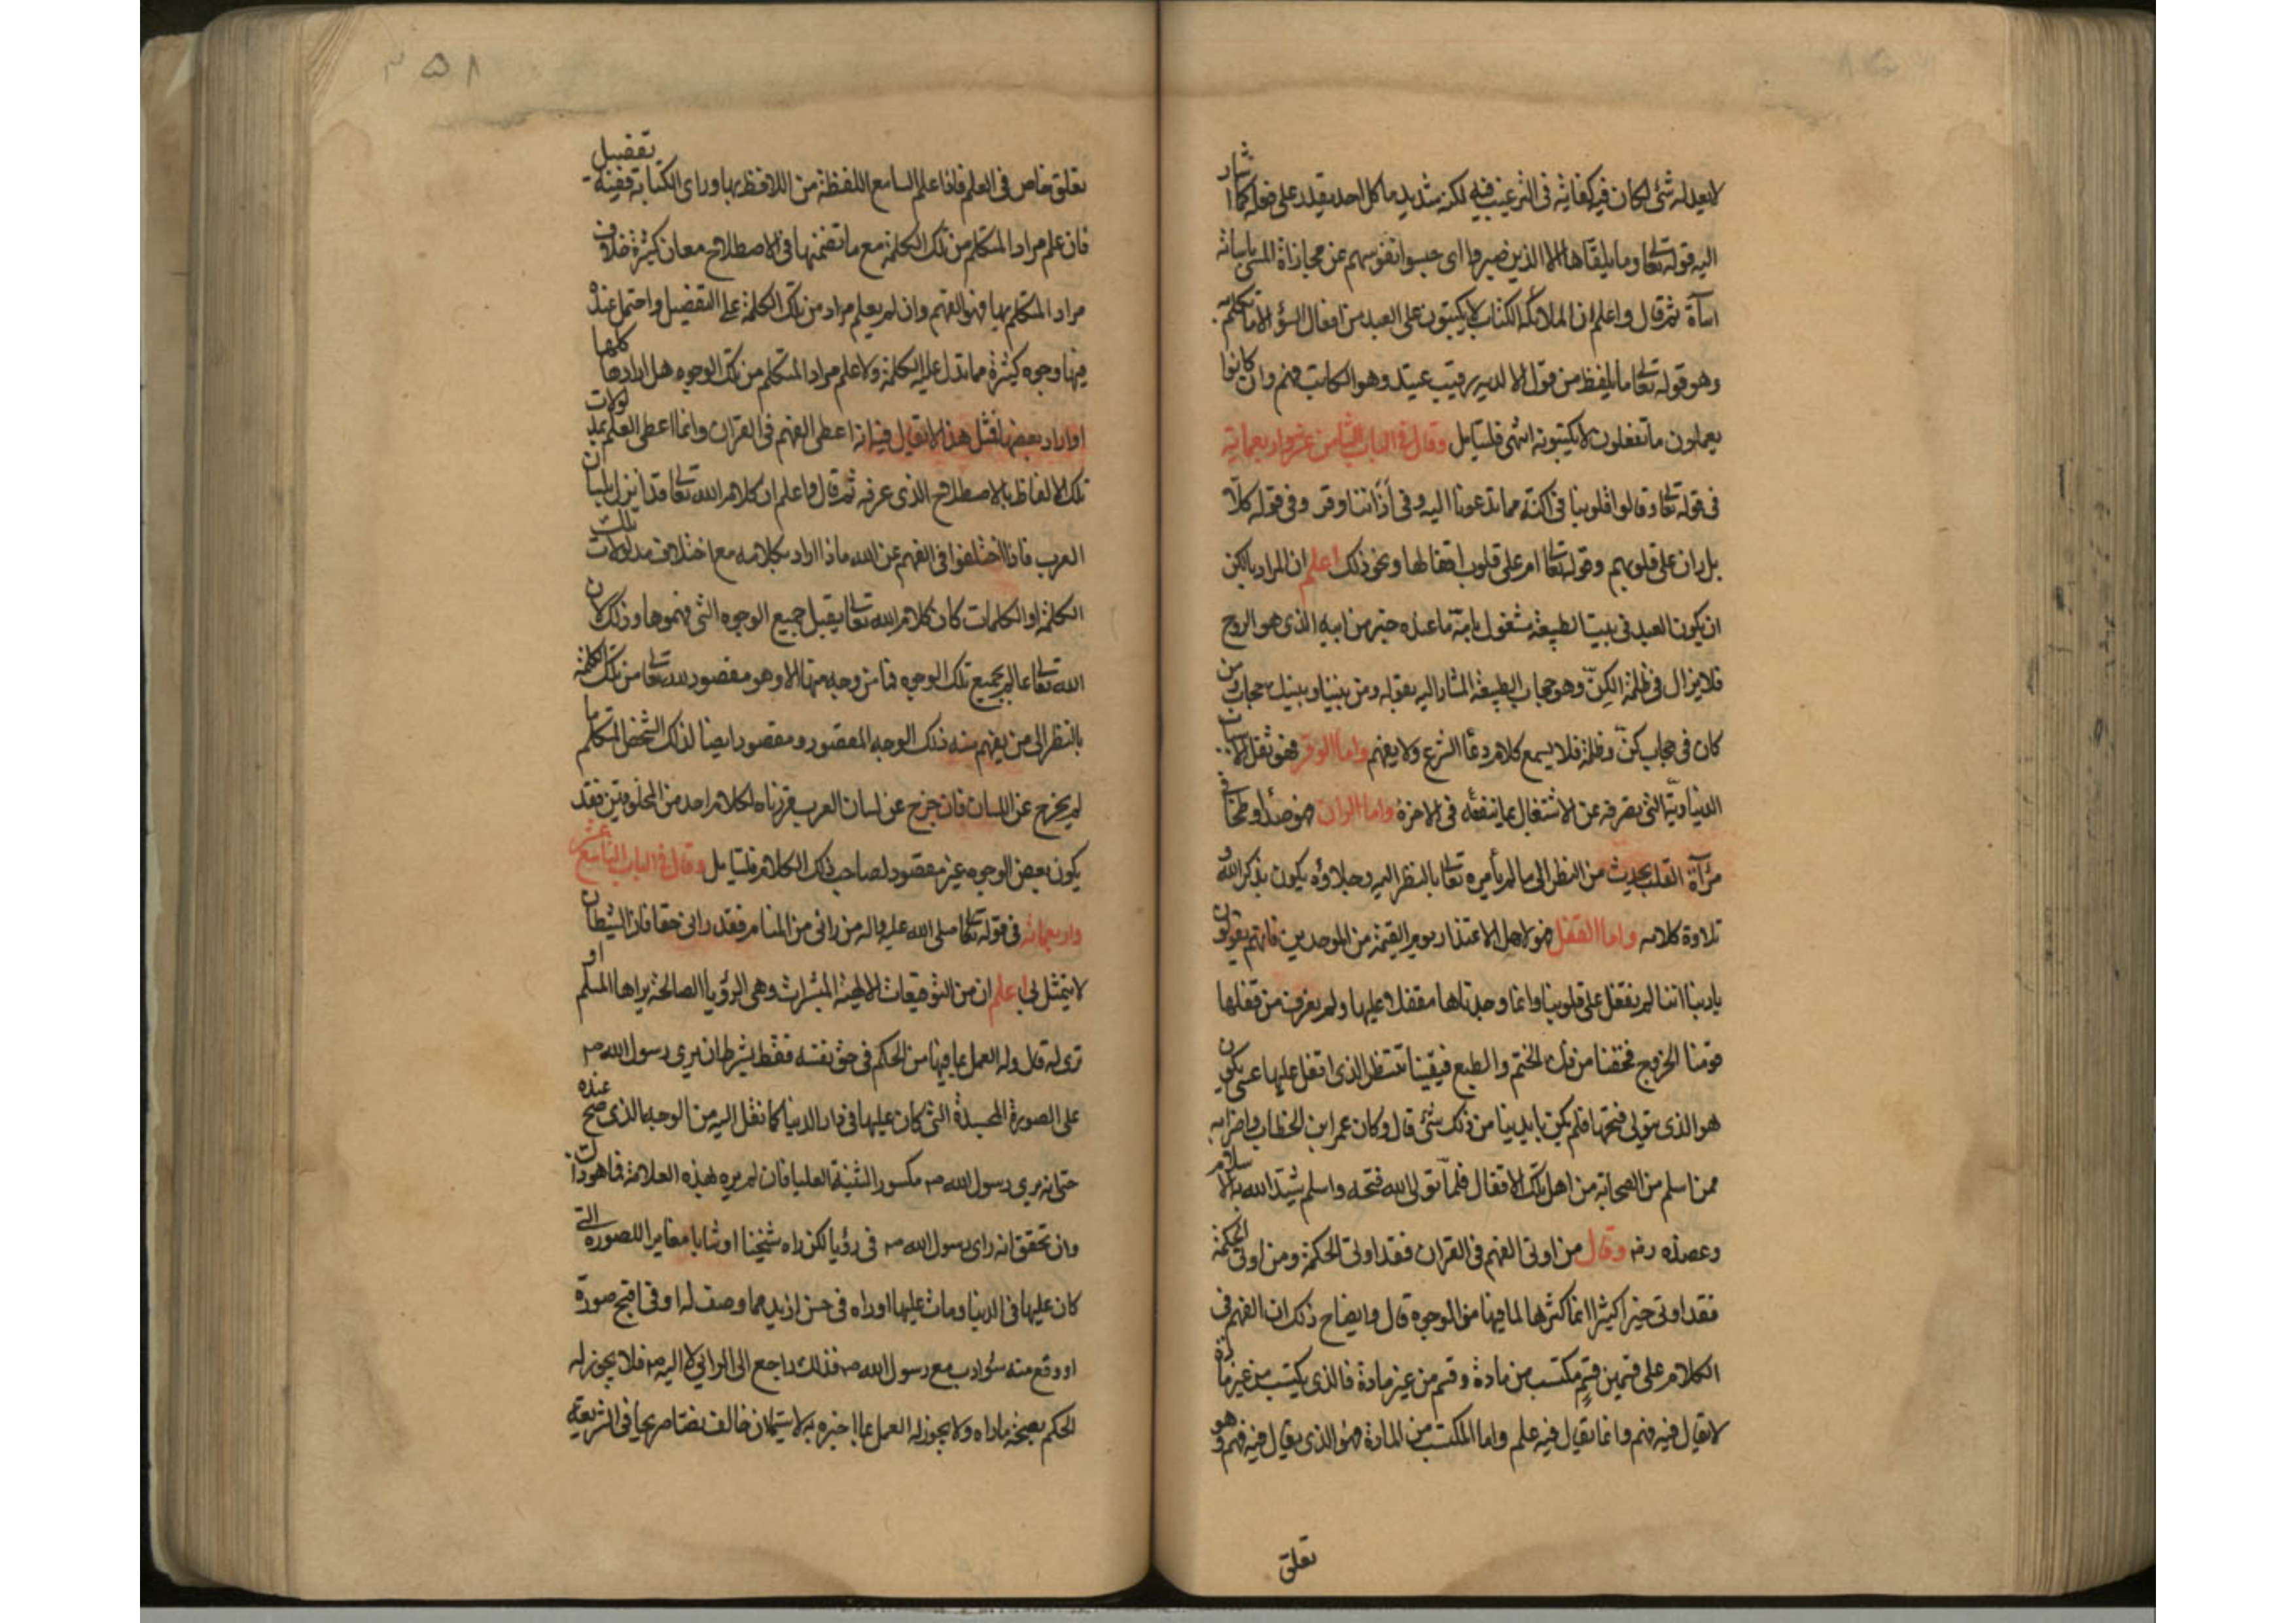 لا يعدله شئ لكان فيه كفاية في الترغيب فيه لكنه شديد ما كل احد يقدر على فعله كما اشار
اليه قوله تعالى وما يلقاها الا الذين صبروا اى حبسوا نفوسهم عن مجازاة المسئ باساته
اساة ثم قال واعلم ان الملائكة الكتاب لا يكتبون على العبد من افعال السؤ الا ما تكلم به
وهو قوله تعالى ما يلفظ من قول الا لديه رقيب عتيد وهو الكاتب فهم وان كانوا
يعملون ما تفعلون لا يكتبونه انتهى فليتامل وقال في الباب الثامن عشر واربعمائة
في قوله تعالى وقالوا قلوبنا في اكنة مما تدعونا اليه وفي آذاننا وقر وفي قوله كلا
بل ران على قلوبهم وقوله تعالى ام على قلوب اقفالها ونحو ذلك اعلم ان المراد بالكن
ان يكون العبد في بيت الطبيعة مشغول بامه ما عنده خبر من ابيه الذى هو الروح
فلا يزال في ظلمة الكن وهو حجاب الطبيعة المشار اليه بقوله ومن بيننا وبينك حجاب فمن
كان في حجاب كن وظلمة فلا يسمع كلام دعا الشرع ولا يفهم واما الوقر فهو ثقل الاسباب
الدنياوية التى تصرفه عن الاشتغال بما ينفعه في الاخرة واما الران فهو صدأ وطخا في
مرآة القلب يحدث من النظر الى ما لم يأمره تعالى بالنظر اليه وجلاوه يكون بذكر الله و
تلاوة كلامه واما القفل فهو لاهل الاعتذار يوم القيمة من الموحدين فانهم يقولون
يا ربنا اننا لم نقفل على قلوبنا وانما وجدناها مقفلا عليها ولم نعرف من قفلها
فرمنا الخروج فخفنا من فك الختم والطبع فبقينا ننتظر الذى اقفل عليها عسى يكون
هو الذى يتولى فتحها فلم يكن بايدينا من ذلك شئ قال وكان عمر ابن الخطاب واضرابه
ممن اسلم من الصحابة من اهل تلك الاقفال فلما تولى الله فتحه واسلم شيد الله به الاسلام
وعضده رضه وقال من اوتى الفهم في القران فقد اوتى الحكمة ومن اوتى الحكمة
فقد اوتى خيرا كثيرا انما كثرها لما فيها من الوجوه قال وايضاح ذلك ان الفهم في
الكلام على قسمين قسم مكتسب من مادة وقسم من غير مادة فالذى يكتسب من غير مادة
لا يقال فيه فهم وانما يقال فيه علم واما المكتسب من المادة فهو الذى يقال فيه فهم وهو
تعلق
٣٥٨
تعلق خاص في العلم فاذا علم السامع اللفظة من اللافظ بها وراى الكتابة ففيه تفضيل
فان علم مراد المتكلم من تلك الكلمة مع ما تضمنها في الاصطلاح معان كثيرة خلاف
مراد المتكلم بها فهو الفهم وان لم يعلم مراد من تلك الكلمة على التفضيل واحتمل عنده
فيها وجوه كثيرة مما تدل عليه الكلمة ولا علم مراد المتكلم من تلك الوجوه هل ارادها كلها
او اراد بعضها فمثل هذا لا يقال فيه انه اعطى الفهم في القرآن وانما اعطى العلم بمدلولات
تلك الالفاظ بالاصطلاح الذى عرفه ثم قال واعلم ان كلام الله تعالى قد انزل بلسان
العرب فاذا اختلفوا في الفهم عن الله ماذا اراد بكلامه مع اختلاف مدلولات تلك
الكلمة او الكلمات كان كلام الله تعالى يقبل جميع الوجوه التى فهموها وذلك لان
الله تعالى عالم بجميع تلك الوجوه فما من وجه منها الا وهو مقصود لله تعالى من تلك الكلمة
بالنظر الى من يفهم منه ذلك الوجه المقصود ومقصود ايضا لذلك الشخص المتكلم ما
لم يخرج عن اللسان فان خرج عن لسان العرب قرزناه لكلام احد من المخلوقين فقد
يكون بعض الوجوه غير مقصود لصاحب ذلك الكلام فليتامل وقال في الباب التاسع عشر
واربعمائة في قوله تعالى صلى الله عليه واله من رانى من المنام فقد رانى حقا فان الشيطان
لا يتمثل بى اعلم ان من التوقيعات الالهية المبشرات وهى الرؤيا الصالحة يراها المسلم او
ترى له قال وله العمل بما فيها من الحكم في حق نفسه فقط بشرط ان يرى رسول الله ص
على الصورة المجسدة التى كان عليها في دار الدنيا كما نقل اليه من الوجه الذى صح عنده
حتى انه يرى رسول الله ص مكسور الثنية العليا فان لم يره بهذه العلامة فما هو ذاك
وان تحقق انه راى رسول الله ص في رؤيا لكن راه شيخنا او شابا مغايرا للصورة التى
كان عليها في الدنيا ومات عليها او راه في حسن ازيد مما وصف له او في اقبح صورة
او وقع منه سؤ ادب مع رسول الله ص فذلك راجع الى الرائي لا اليه ص فلا يجوز له
الحكم بصحة ما راه ولا يجوز له العمل بما اخبره به لا سيما ان خالف نصا صريحا في الشريعة